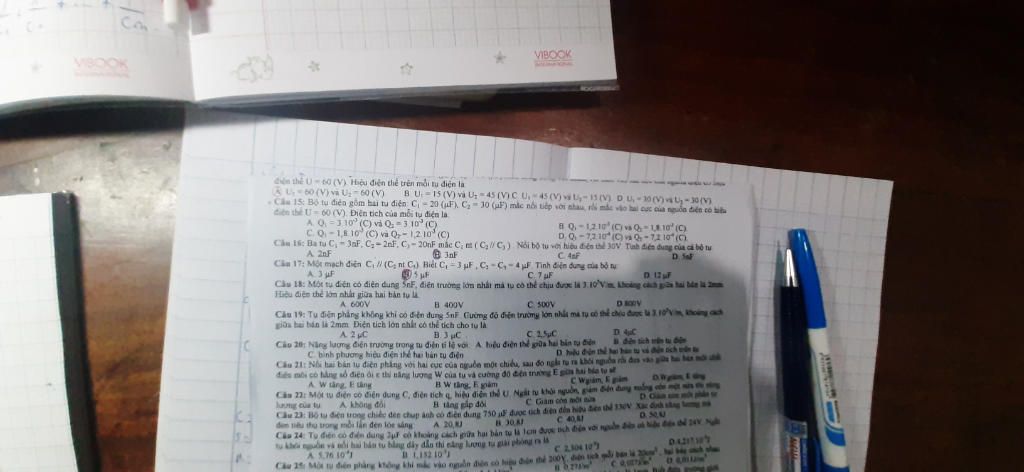 VIBOOK
INTERNATIONAL
VIBOOK
INTERNATIONAL
điện thế U = 60 (V). Hiệu điện thế trên mỗi tụ điện là
A. U₁ = 60 (V) và U₂ = 60 (V) B. U₁ = 15 (V) và U₂ = 45 (V) C. U₁ = 45 (V) và U₂ = 15 (V). D. U₁ = 30 (V) và U₂ = 30 (V)
Câu 15: Bộ tụ điện gồm hai tụ điện: C₁ = 20 (μF), C₂ = 30 (μF) mắc nối tiếp với nhau, rồi mắc vào hai cực của nguồn điện có hiệu
điện thế U = 60 (V). Điện tích của mỗi tụ điện là
A. Q₁ = 3.10⁻³ (C) và Q₂ = 3.10⁻³ (C) B. Q₁ = 1,2.10⁻³ (C) và Q₂ = 1,8.10⁻³ (C)
C. Q₁ = 1,8.10⁻³ (C) và Q₂ = 1,2.10⁻³ (C) D. Q₁ = 7,2.10⁻⁴ (C) và Q₂ = 7,2.10⁻⁴ (C)
Câu 16: Ba tụ C₁ = 3nF, C₂ = 2nF, C₃ = 20nF mắc C₁ nt ( C₂ // C₃ ). Nối bộ tụ với hiệu điện thế 30V. Tính điện dung của cả bộ tụ
A. 2nF B. 3nF C. 4nF D. 5nF
Câu 17: Một mạch điện C₁ // (C₂ nt C₃). Biết C₁ = 3 μF, C₂ = C₃ = 4 μF. Tính điện dung của bộ tụ:
A. 3 μF B. 5 μF C. 7 μF D. 12 μF
Câu 18: Một tụ điện có điện dung 5nF, điện trường lớn nhất mà tụ có thể chịu được là 3.10⁵V/m, khoảng cách giữa hai bản là 2mm
Hiệu điện thế lớn nhất giữa hai bản tụ là
A. 600V B. 400V C. 500V D.800V
Câu 19: Tụ điện phẳng không khí có điện dung 5nF. Cường độ điện trường lớn nhất mà tụ có thể chịu được là 3.10⁵V/m, khoảng cách
giữa hai bản là 2mm. Điện tích lớn nhất có thể tích cho tụ là
A. 2 μC B. 3 μC C. 2,5μC D. 4μC
Câu 20: Năng lượng điện trường trong tụ điện tỉ lệ với: A. hiệu điện thế giữa hai bản tụ điện B. điện tích trên tụ điện
C. bình phương hiệu điện thế hai bản tụ điện D. hiệu điện thế hai bản tụ và điện tích trên tụ
Câu 21: Nối hai bản tụ điện phẳng với hai cực của nguồn một chiều, sau đó ngắt tụ ra khỏi nguồn rồi đưa vào giữa hai bản một chất
điện môi có hằng số điện môi ε thì năng lượng W của tụ và cường độ điện trường E giữa hai bản tụ sẽ
A. W tăng, E tăng B.W tăng, E giảm C.Wgiảm, E giảm D.Wgiảm, E tăng
Câu 22: Một tụ điện có điện dung C, điện tích q, hiệu điện thế U. Ngắt tụ khỏi nguồn, giảm điện dung xuống còn một nửa thì năng
lượng của tụ A. không đổi B. tăng gấp đôi C. Giảm còn một nửa D. Giảm còn một phần tư
Câu 23: Bộ tụ điện trong chiếc đèn chụp ảnh có điện dung 750 μF được tích điện đến hiệu điện thế 330V. Xác định năng lượng mà
đèn tiêu thụ trong mỗi lần đèn lóe sáng A. 20,8J B. 30,8J C. 40,8J D. 50,8J
Câu 24: Tụ điện có điện dung 2μF có khoảng cách giữa hai bản tụ là 1cm được tích điện với nguồn điện có hiệu điện thế 24V. Ngắt
tụ khỏi nguồn và nối hai bản tụ bằng dây dẫn thì năng lượng tụ giải phóng ra là
A. 5,76.10⁻⁴J B. 1,152.10⁻³J C. 2,304.10⁻³J D.4,217.10⁻³J
Câu 25: Một tụ điện phẳng không khí mắc vào nguồn điện có hiệu điện thế 200V, diện tích mỗi bản là 20cm², hai bản cách nhau